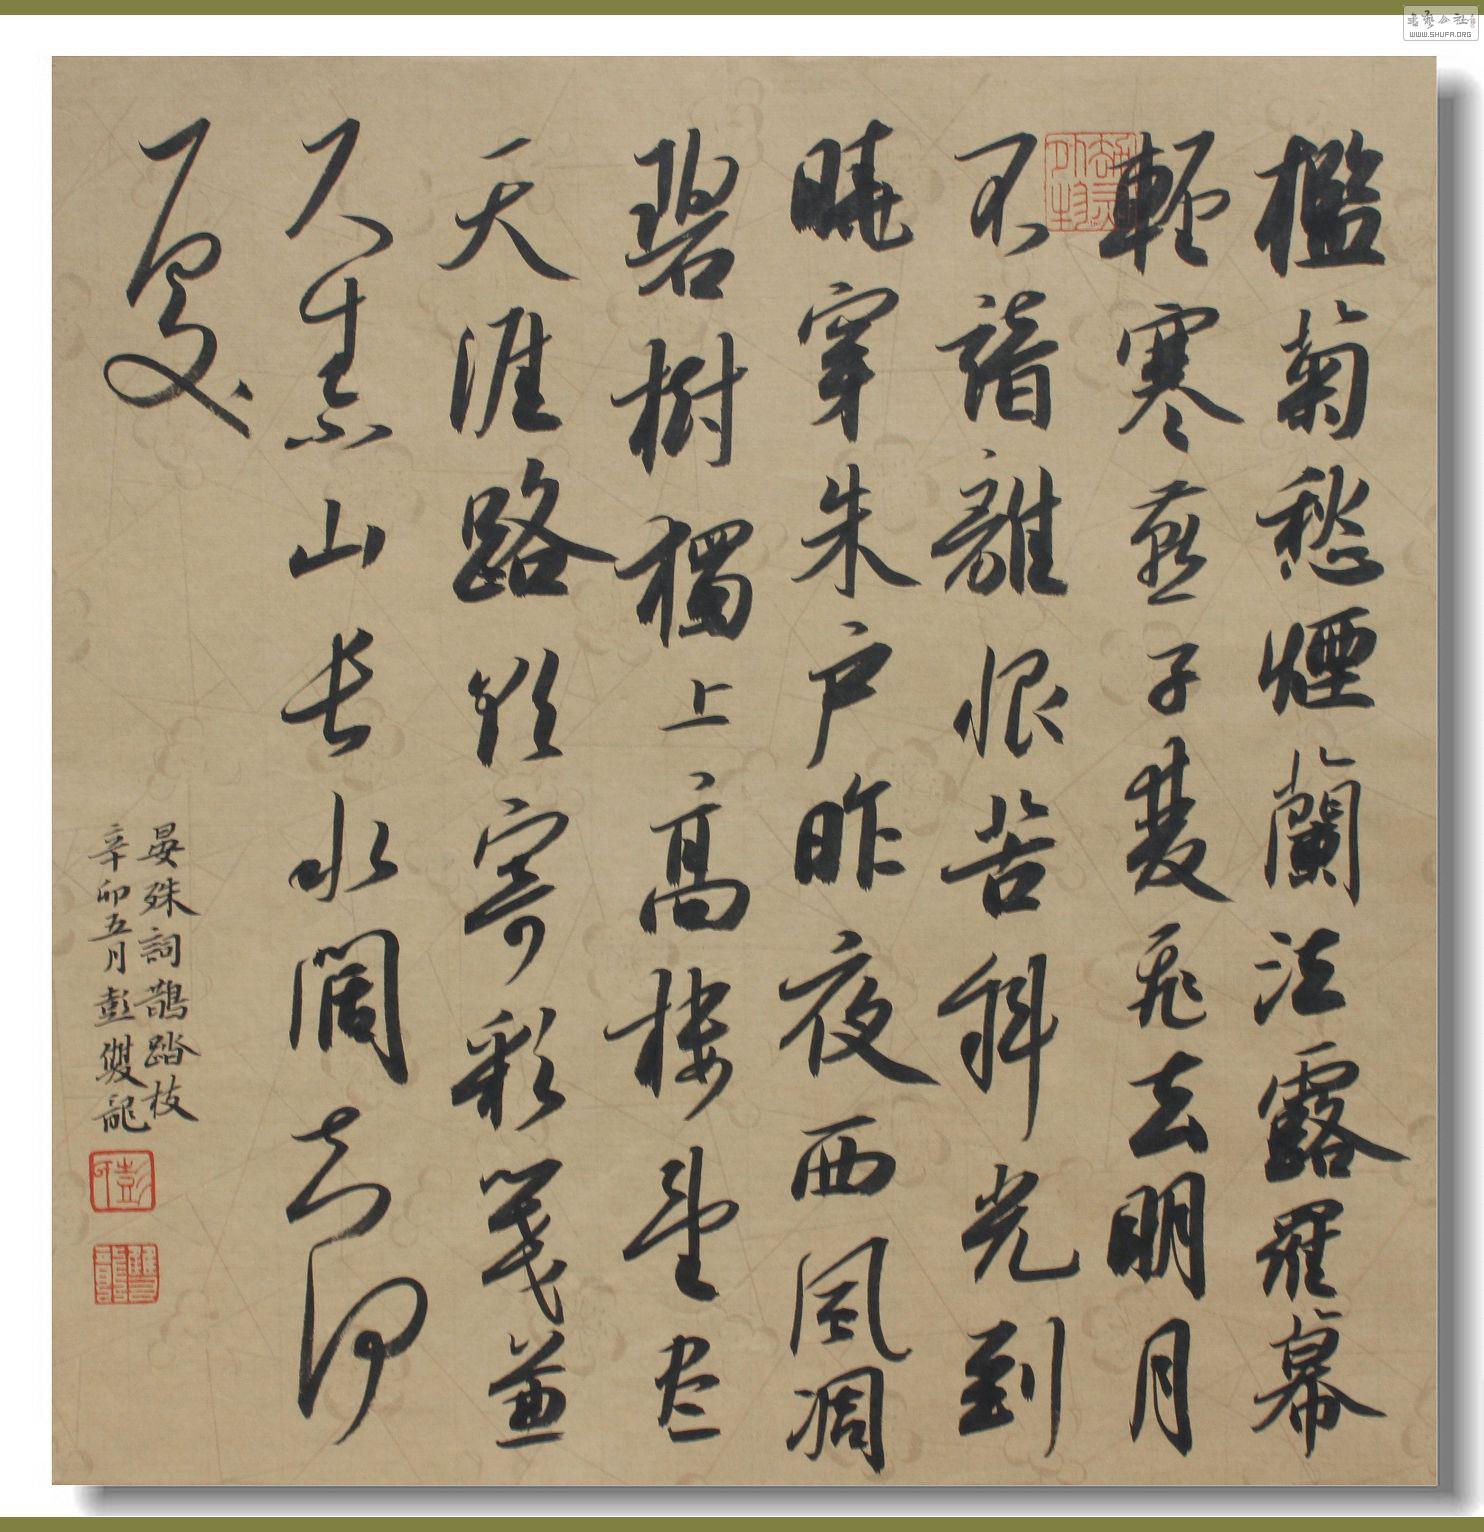 檻菊愁煙蘭泣露羅幕
輕寒燕子雙飛去明月
不諳離恨苦斜光到
曉穿朱戶昨夜西風凋
碧樹獨上高樓望尽
天涯路欲寄彩箋兼
尺素山長水闊知何
處
晏殊詞鵲踏枝
辛卯五月彭雙龍
WWW.SHUFA.ORG